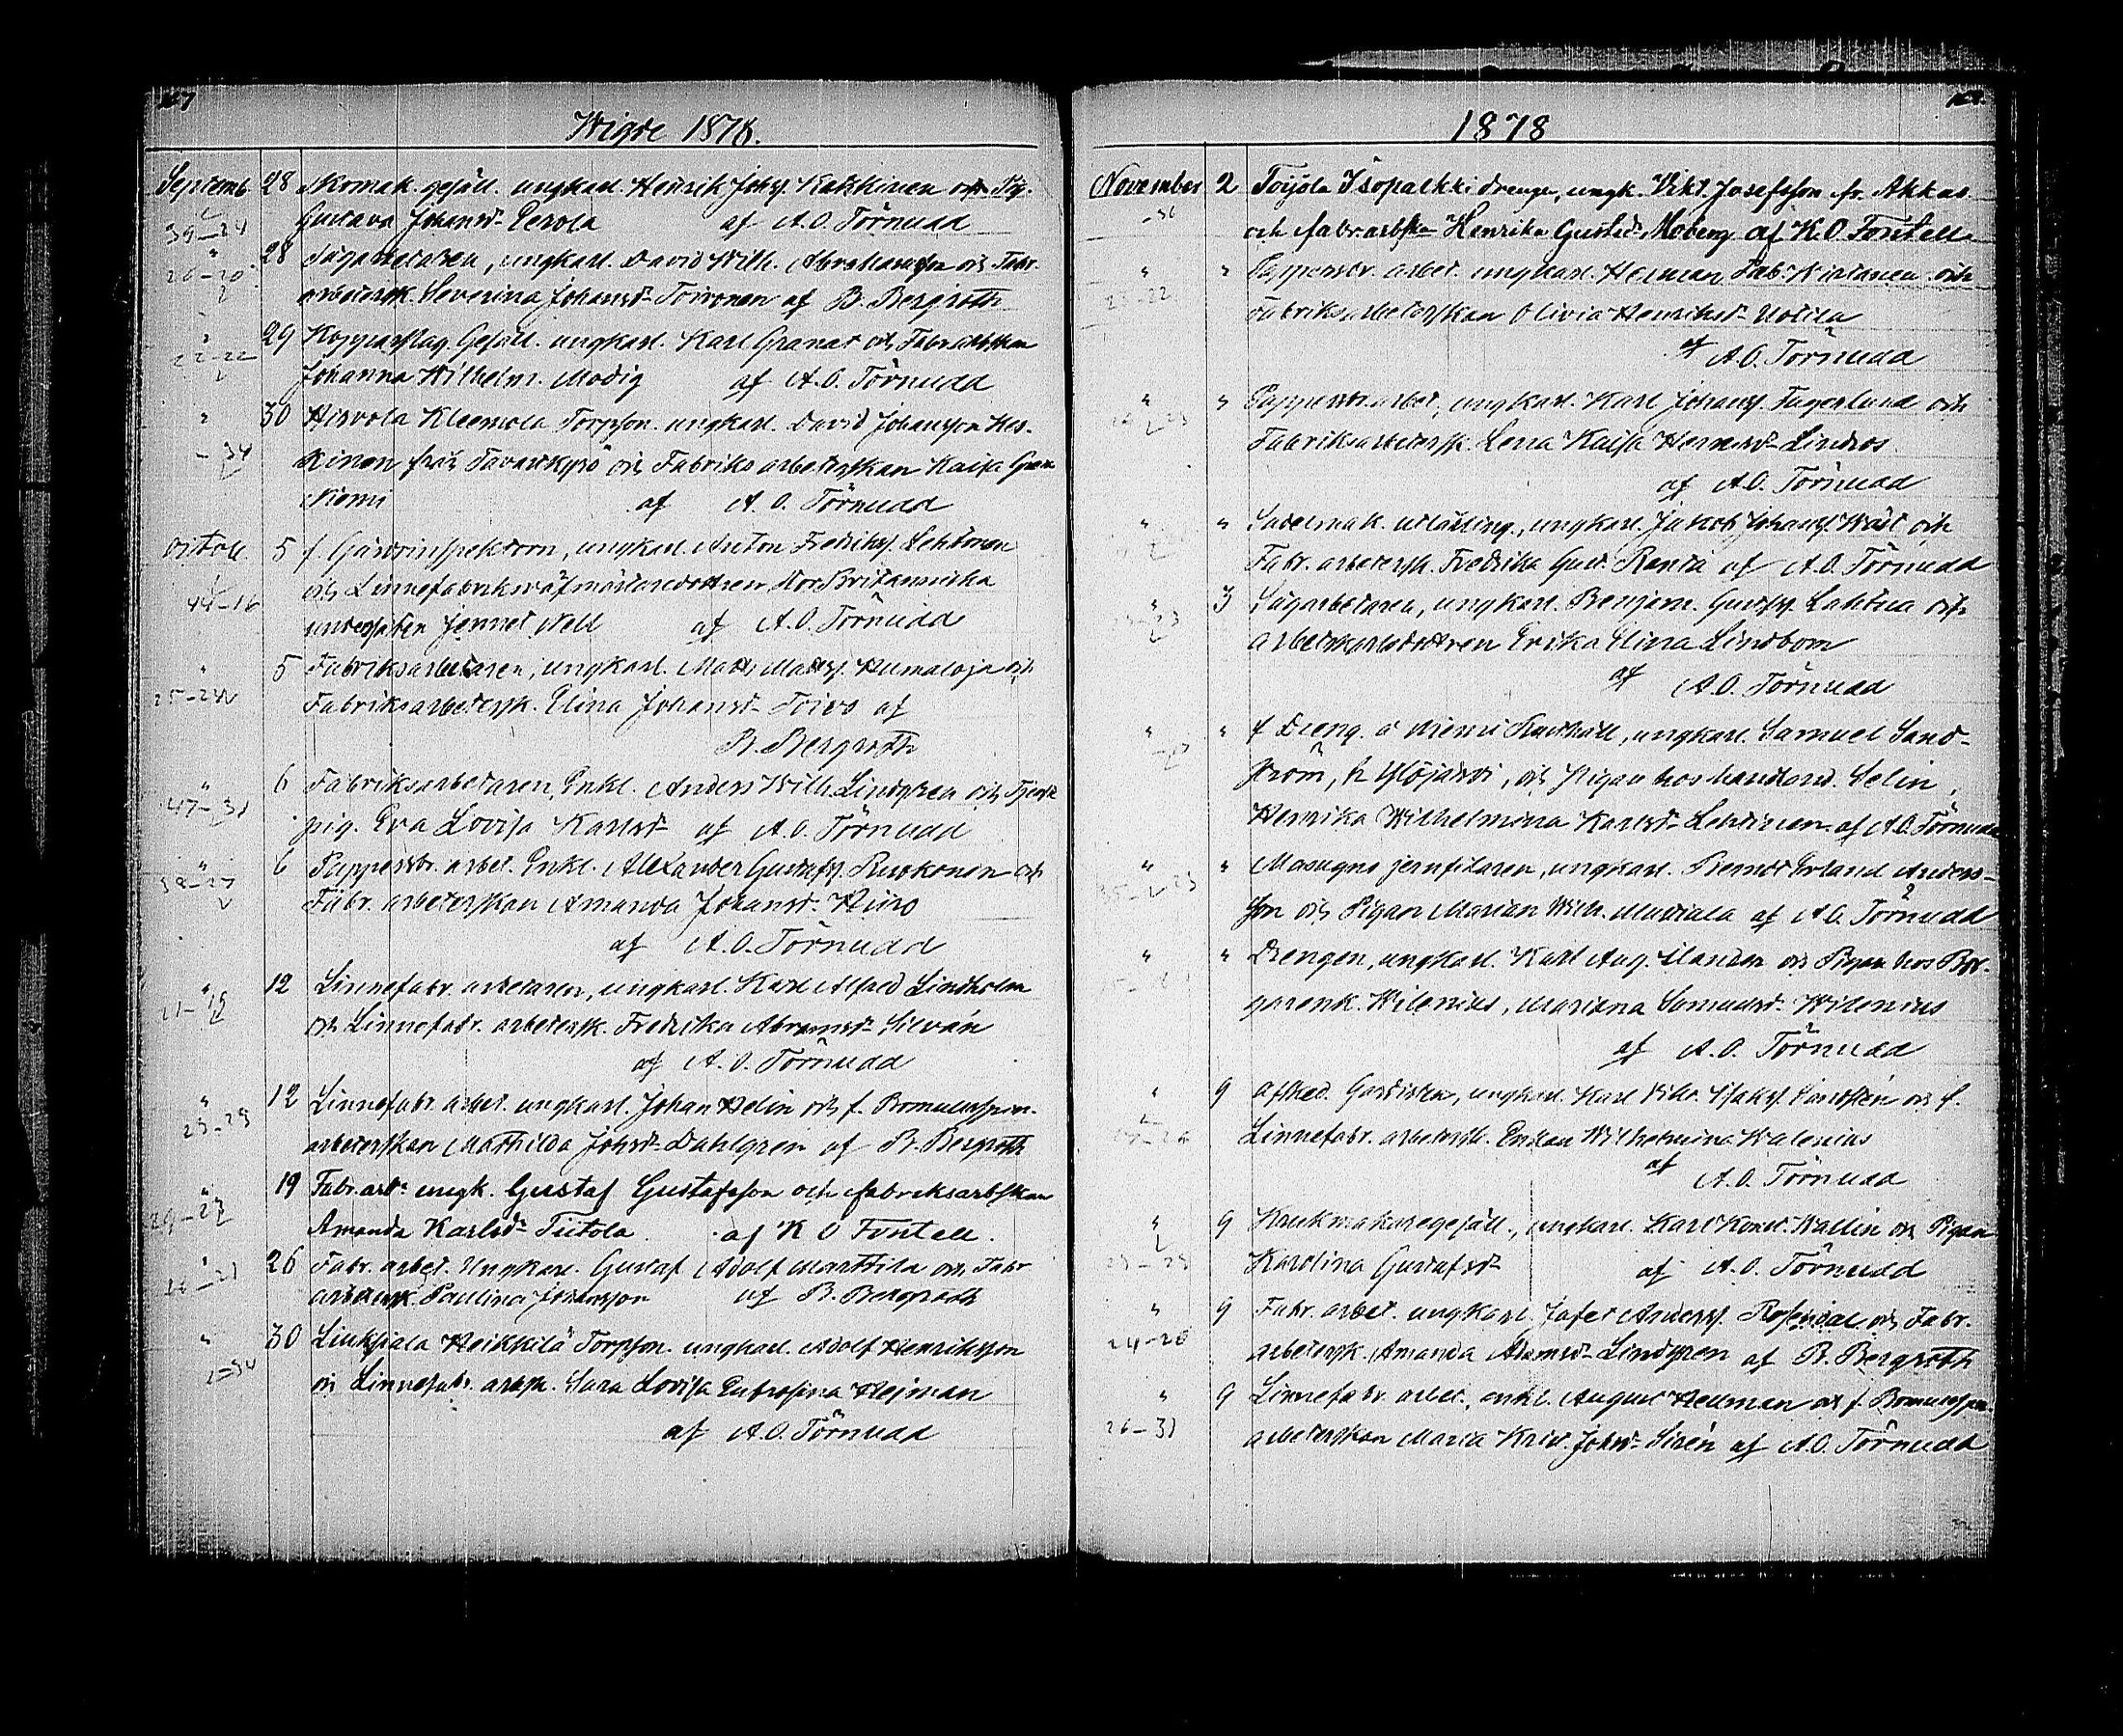 Wigde 1878.
Septemb. 28 Skomak. gesäll. ungkarl. Henrik Johss. Katkinen och Pig.
39-24 Gustava Johansd:r Perola af A. O. Törnudd
" 28 Sågarbetaren, ungkarl. David Wilh. Abrahamsson och Fabr.
26-20 arbetersk. Severina Johansd:r Toivonen af B. Bergroth
" 29 Kopparslag. Gesäll. ungkarl. Karl Granat och Fabr.arbskan
22-22 Johanna Wilhelm. Modig af A. O. Törnudd
" 30 Hirvola Kleemola Torpson. ungkarl. David Johansson Kes-
-34 kinen från Tavastkyrö och Fabriks arbeterskan Kaisa
Niemi af A. O. Törnudd
Octob. 5 f. Gårdsinspektorn, ungkarl Anton Fredrikss. Lehtonen
44-16 och Linnefabriksväfmästaredottren Stor Britanniska
undersåten Jennet Nell af A. O. Törnudd
" 5 Fabriksarbetaren, ungkarl. Matts Matss. Humaloja och
25-24 Fabriksarbetersk. Elina Johansd:r Toivo af
B. Bergroth
" 6 Fabriksarbetaren, Enkl. Anders Wilh. Lindgren och Tjenst
47-31 pig. Eva Lovisa Karlsd:r af A. O. Törnudd
" 6 Pappersbr. arbet. Enkl. Alexander Gustafss. Ruokonen och
39-27 Fabr. arbeterskan Amanda Johansd:r
af A. O. Törnudd
" 12 Linnefabr. arbetaren, ungkarl. Karl Alfred Lindholm
21-19 och Linnefabr. arbetersk. Fredrika Abramsd:r Silvén
af A. O. Törnudd
" 12 Linnefabr. arbet. ungkarl. Johan Helin och f. Bomullsspin.
23-29 arbeterskan Mathilda Johsd:r Dahlgren af B. Bergroth
" 19 Fabr.arb:n ungk. Gustaf Gustafsson och fabriksarbskan
29-27 Amanda Karlsd:r Tiitola. af K O Fontell.
" 26 Fabr. arbet. Ungkarl. Gustaf Adolf Marttila och Fabr
26-21 arbetersk. Paulina Johansson af B. Bergroth
" 30 Liuksiala Heikkilä Torpson. ungkarl. Adolf Henriksson
-34 och Linnefabr. arbsk. Sara Lovisa Eufrosina Hejman
af A. O. Törnudd
1878
November 2 Toijola Isopalkki drenge, ungk. Vikt. Josefsson fr. Akkas
-36 och fabrarbskan Henrika Gustsd:r Moberg af K. O. Fontell.
" " Pappersbr. arbet. ungkarl. Herman Kivtanen och
23-22 Fabriksarbeterskan Olivia Henriksd:r Uotila
af A. O. Törnudd
" " Pappersbr.arbet, ungkarl. Karl Johanss. Fagerlund och
Fabriksarbetersk. Lena Kaisa Henrsd:r Lindros
af A. O. Törnudd
" " Sadelmak. utlärling, ungkarl. Jakob Johanss. och
Fabr. arbetersk. Fredrika Gust. Ranta af A. O. Törnudd
" 3 Sågarbetaren, ungkarl. Benjam. Gustfss. Lahtua och
arbetskarlsdottren Erika Elina Lindbom
af A. O. Törnudd
" " f Dreng. å Niemi Rusthåll, ungkarl. Samuel Sand-
ström, fr Ylöjärvi, och Pigan hos handland. Selin,
Henrika Wilhelmina Karlsd:r Lehtinen. af A. O. Törnudd
" " Masugns jernfilaren, ungkarl. Erland Anders-
35-23 son och Pigan Marian Wilh. Mattala af A. O. Törnudd
" " Drengen, ungkarl. Karl Aug. Ilander och Pigan hos Bor-
garenk. Wilenius, Mariana Samuelsd:r Widenius
af A. O. Törnudd
" 9 Afsked. Gardisten, ungkarl. Karl Isakss. Lindstén och f.
Linnefabr. arbetersk. Enkan Wilhelmina Walenius
af A. O. Törnudd
" 9 Krukmakaregesäll., ungkarl. Karl Konst. Wallin och Pigan
23-25 Karolina Gustafsd:r af A. O. Törnudd
" 9 Fabr. arbet. ungkarl. Jafet Anderss. Rosendal och Fabr.
24-20 arbetersk. Amanda Adamsd:r Lindgren af B. Bergroth
" 9 Linnefabr. arbet., enkl. August Hellman och f. Bomullsspin.
26-31 arbeterskan Maria Krist. Johsd:r Sirén af A. O. Törnudd